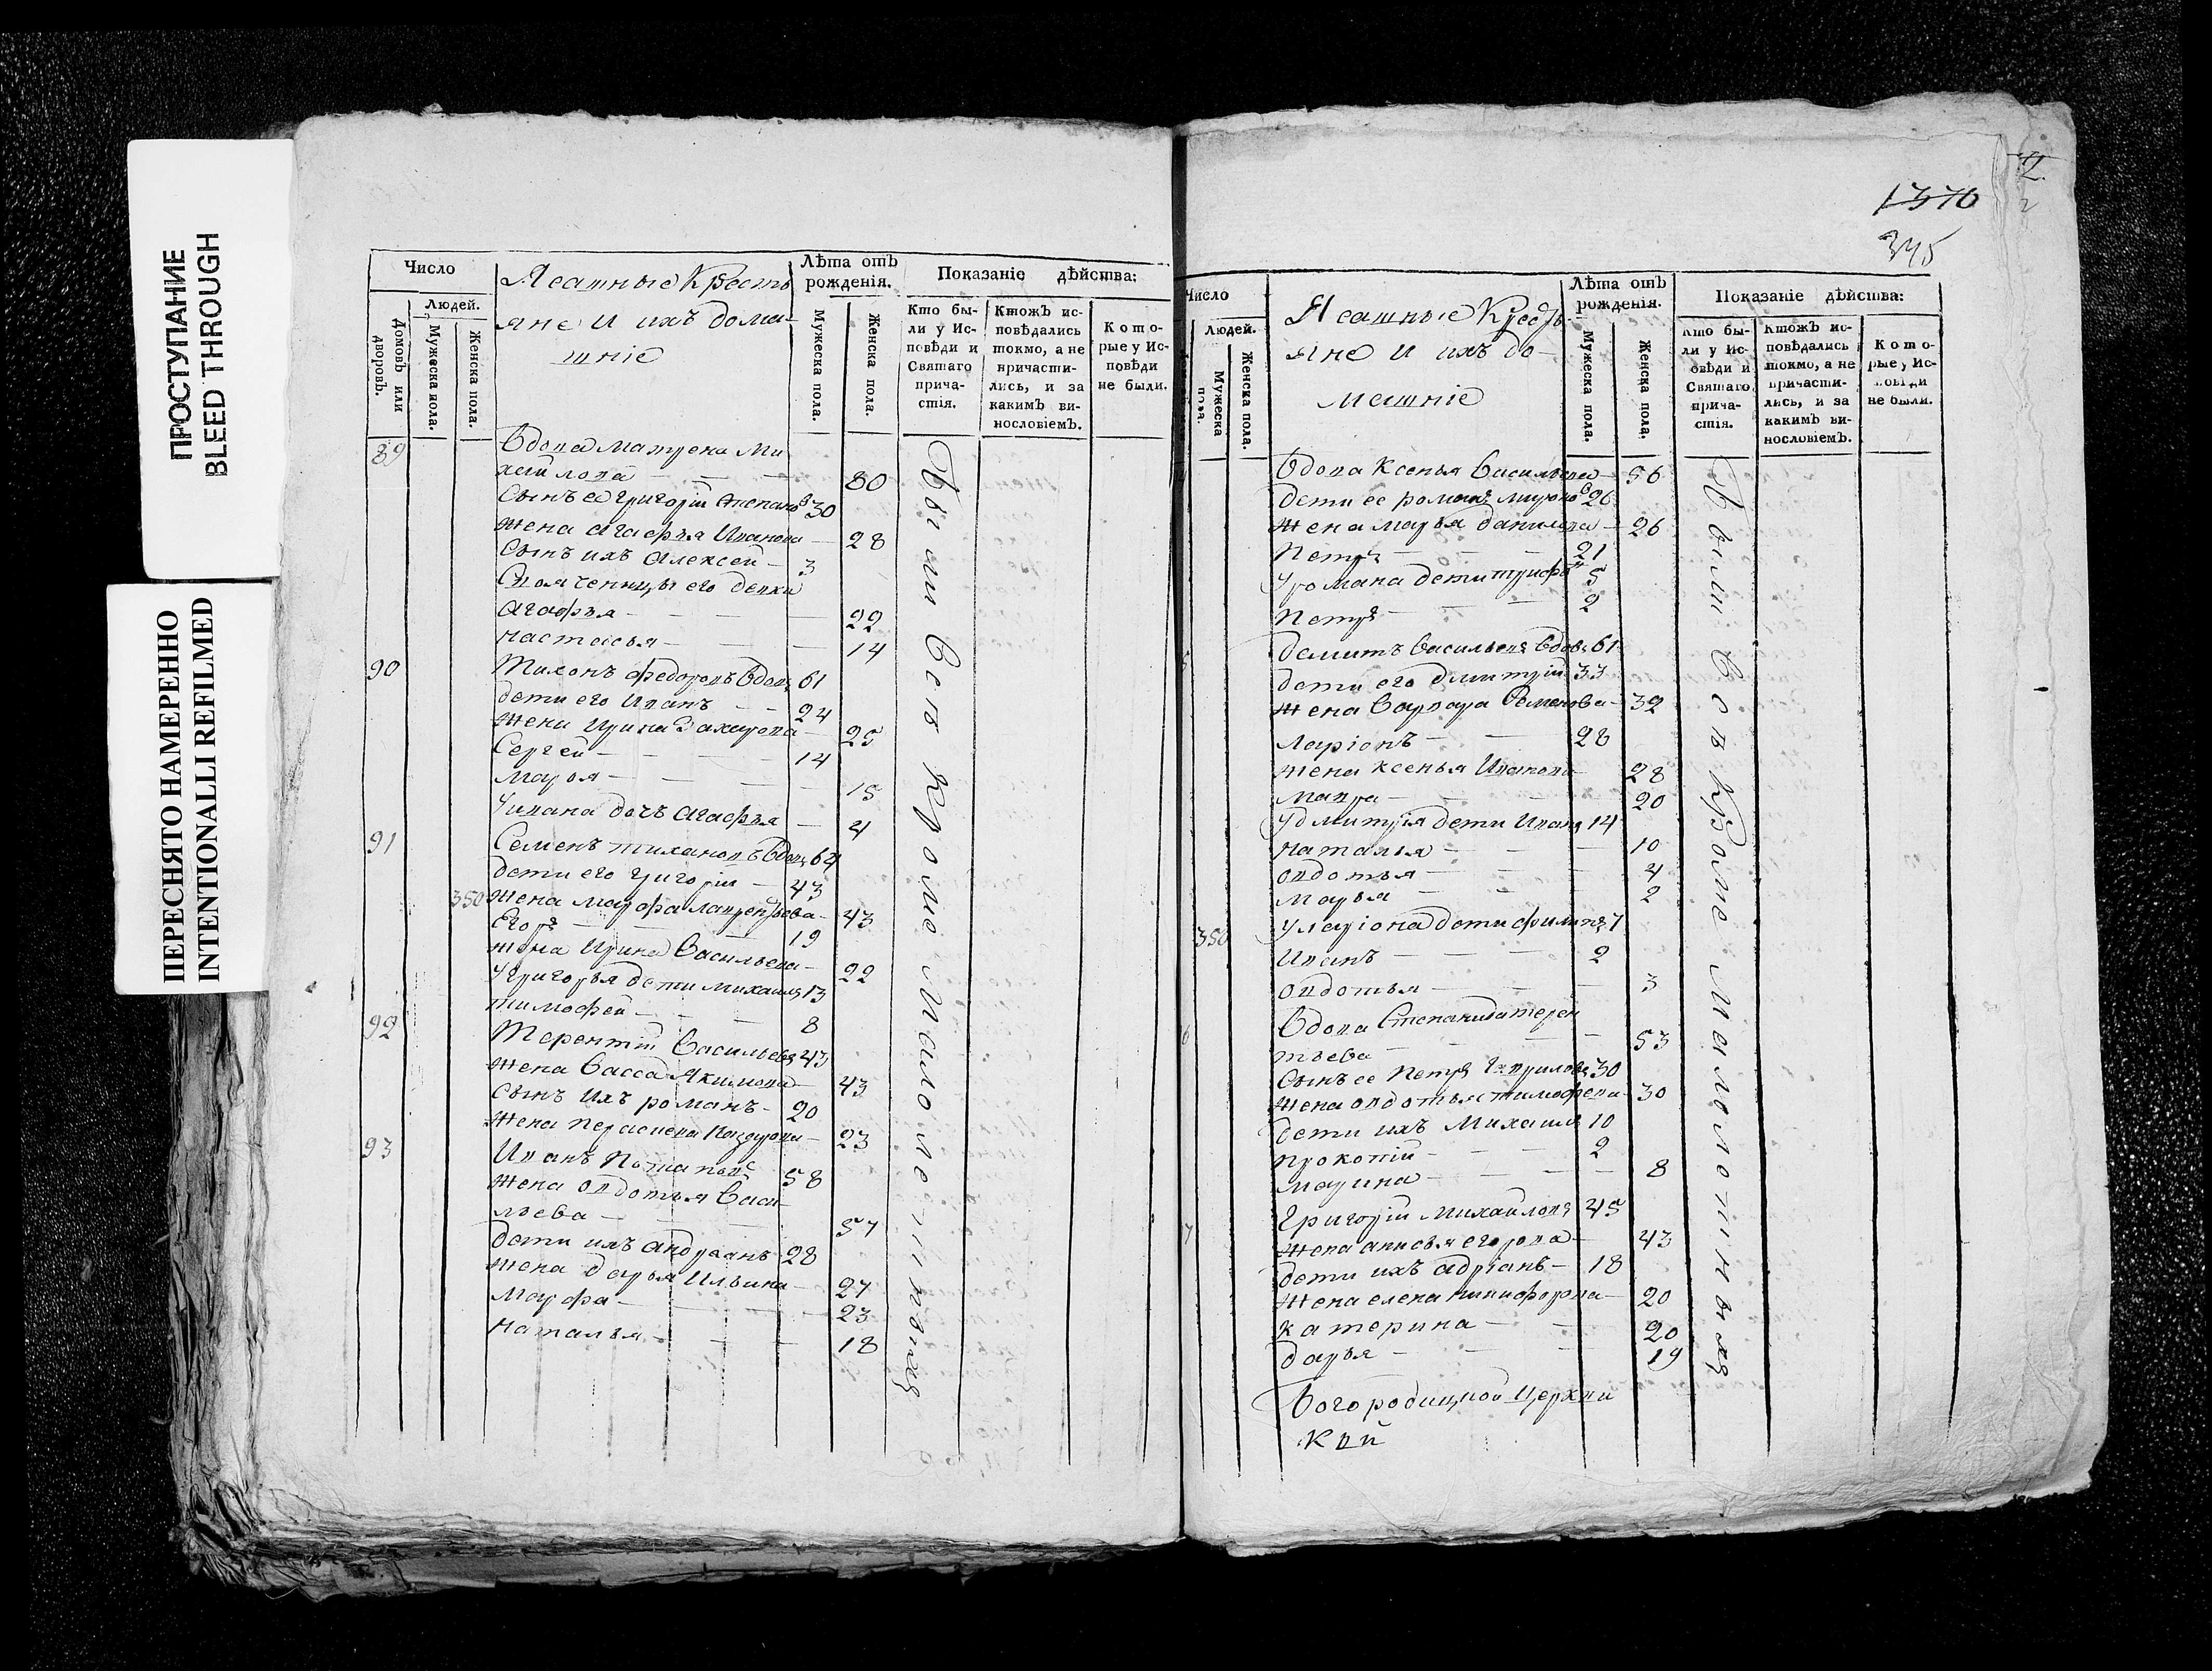 ПРОСТУПАНИЕ
BLEED THROUGH
ПЕРЕСНЯТО НАМЕРЕННО
INTENTIONALLI REFILMED
Число
Людей.
Домовъ или дворовъ.
Мужеска пола.
Женска пола.
Ясашные Кресть
яне И ихъ дома-
шніе
Лѣта отъ рожденія.
Мужеска пола.
Женска пола.
Показаніе дѣйства:
Кто были у Исповѣди и Святаго причастія.
Ктожъ исповѣдались токмо, а не причастились, и за какимъ винословіемъ.
Которые у Исповѣди не были.
89 Вдова Матрена Ми
хайлова 80
Сынъ ее Григорій Степановъ 30
жена Агафья Иванова 28
Сынъ ихъ Алексей 3
его девки
Агафья 22
Настасья 14
90 Тихонъ Федоровъ вдовъ 61
дети его Иванъ 24
жена Ирина Захарова 25
Сергей 14
Марья 15
У Ивана дочь Агафья 4
91 Семенъ Тихановъ вдовъ 64
дети его Григорій 43
350 жена Марфа Лаврентьева 43
Егоръ 19
жена Ирина Васильева 22
У Григорья дети Михаилъ 13
Тимофей 8
92 Терентій Васильевъ 43
жена Васса Якимова 43
Сынъ ихъ Романъ 20
жена 23
93 Иванъ Потаповъ 58
жена Овдотья Васи
льева 57
дети ихъ Андреанъ 28
жена Дарья Ильина 27
Марфа 23
Наталья 18
Были Все Кроме Малолетныхъ
1370
345
Число
Людей.
Мужеска пола.
Женска пола.
Ясашные Кресть-
яне И ихъ до-
машніе
Лѣта отъ рожденія.
Мужеска пола.
Женска пола.
Показаніе дѣйства:
Кто были у Исповѣди и Святаго причастія.
Ктожъ исповѣдались токмо, а не причастились, и за какимъ винословіемъ.
Которые у Исповѣди не были.
Вдова Ксенья Васильева 56
дети ее Романъ Мироновъ 26
жена Марья Данилова 26
Петръ 21
У Романа дети Трифонъ 5
Петръ 2
Васильевъ вдовъ 61
дети его Дмитрій 33
жена Варвара Семенова 32
Ларіонъ 28
жена Ксенья Иванова 28
Мавра 20
У Дмитрія дети Иванъ 14
Наталья 10
Овдотья 4
Марья 2
350 У Ларіона дети Филипъ 7
Иванъ 2
Овдотья 3
6 Вдова Степанида Терен
тьева 53
Сынъ ее Петръ Гавриловъ 30
жена Овдотья Тимофеева 30
дети ихъ Михаилъ 10
Прокопій 2
Марина 8
7 Григорій Михайловъ 45
жена Анисья Егорова 43
дети ихъ Адріанъ 18
жена Елена Никифорова 20
Катерина 20
Дарья 19
Богородицкой Церкви
Были Все Кроме Малолетныхъ